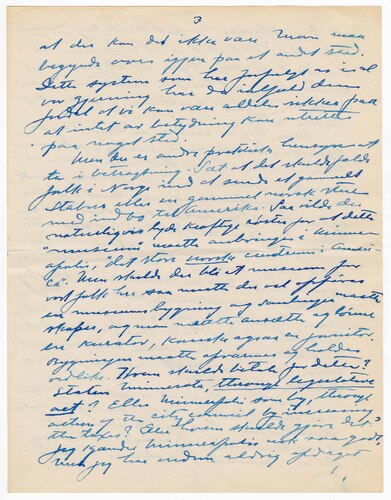 3
at der kan det ikke være. Man maa
begynde over igjen paa et andet sted.
Dette system som har forfulgt os i al
vor gjerning her har ialfald den
fordel at vi kan være aldeles sikker paa
at intet av betydning kan utrettes
paa noget sted.
Men der er andre praktiske hensyn at
ta i betragtning. Sæt at det skulde falde
folk i Norge ind at sende et gammelt
Stabur eller en gammel norsk stue
med indbo til Amerika. Saa vilde det
naturligvis lyde kraftige røster for at dette
"museum" maatte anbringes i Minne-
apolis, "det store norske centrum i Ameri-
ca". Men skulde det bli et museum for
vort folk her saa maatte der vel opføres
en museums bygning og samlinger maatte
skapes, og man maatte ansætte og lønne
en kurator, kanske ogsaa en janitor.
Bygningen maatte opvarmes og holdes
vedlike. Hvem skulde betale for dette?
Staten Minnesota, through legislative
act? Eller Minneapolis som by, through
action of the city council by increasing
the taxes? Eller hvem skulde gjøre det?
Jeg kjender Minneapolis nok saa godt,
men jeg har endnu aldrig opdaget